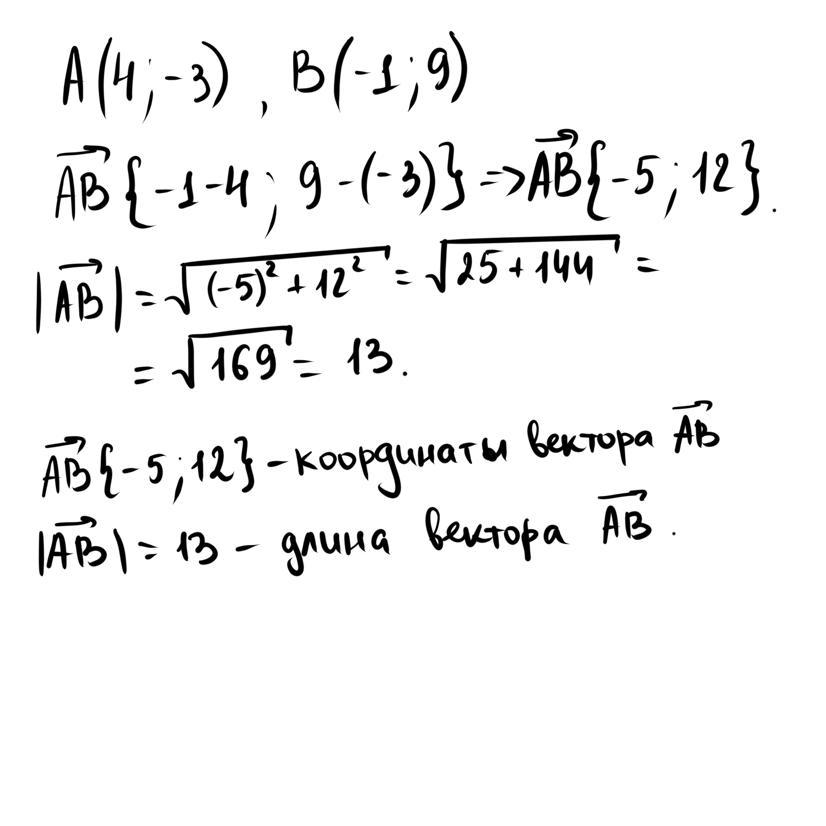 A(4;-3), B(-1;9)
$\overrightarrow{AB}${-1-4; 9-(-3)} => $\overrightarrow{AB}${-5;12}.
|$\overrightarrow{AB}$| = √((-5)² + 12²) = √(25 + 144) =
= √(169) = 13.
$\overrightarrow{AB}${-5;12} - координаты вектора $\overrightarrow{AB}$
|$\overrightarrow{AB}$| = 13 - длина вектора $\overrightarrow{AB}$.